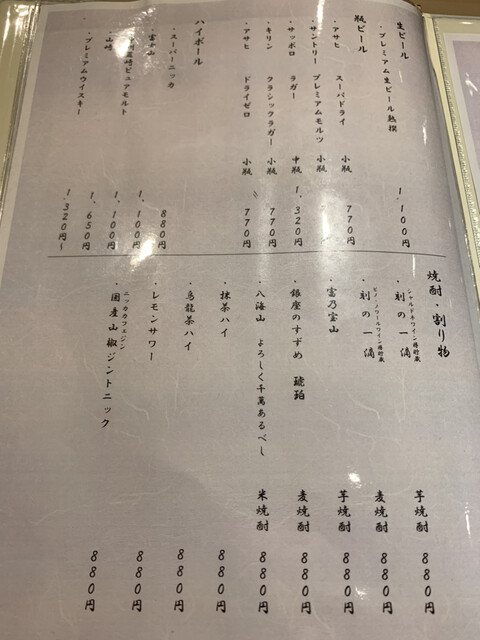 生ビール
・プレミアム生ビール熟撰 1,100円
瓶ビール
・アサヒ スーパードライ 小瓶 770円
・サントリー プレミアムモルツ 小瓶
・サッポロ ラガー 中瓶 1,320円
・キリン クラシックラガー 小瓶 770円
・アサヒ ドライゼロ 小瓶 770円
ハイボール
・スーパーニッカ 880円
・富士山 1,100円
ピュアモルト 1,100円
・山崎 1,650円
・プレミアムウイスキー 1,320円~
焼酎・割り物
シャルドネワイン樽貯蔵
・刻の一滴 芋焼酎 880円
ピノ・ノワールワイン樽貯蔵
・刻の一滴 麦焼酎 880円
・富乃宝山 芋焼酎 880円
・銀座のすずめ 琥珀 麦焼酎 880円
・八海山 よろしく千萬あるべし 米焼酎 880円
・抹茶ハイ 880円
・烏龍茶ハイ 880円
・レモンサワー 880円
ニッカカフェジン
・国産山椒ジントニック 880円